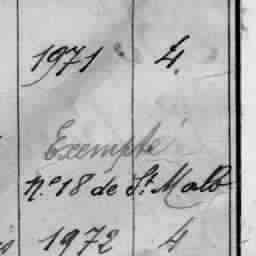 1971 4.
Exempté
n.º 18 de St. Malo
1972 4